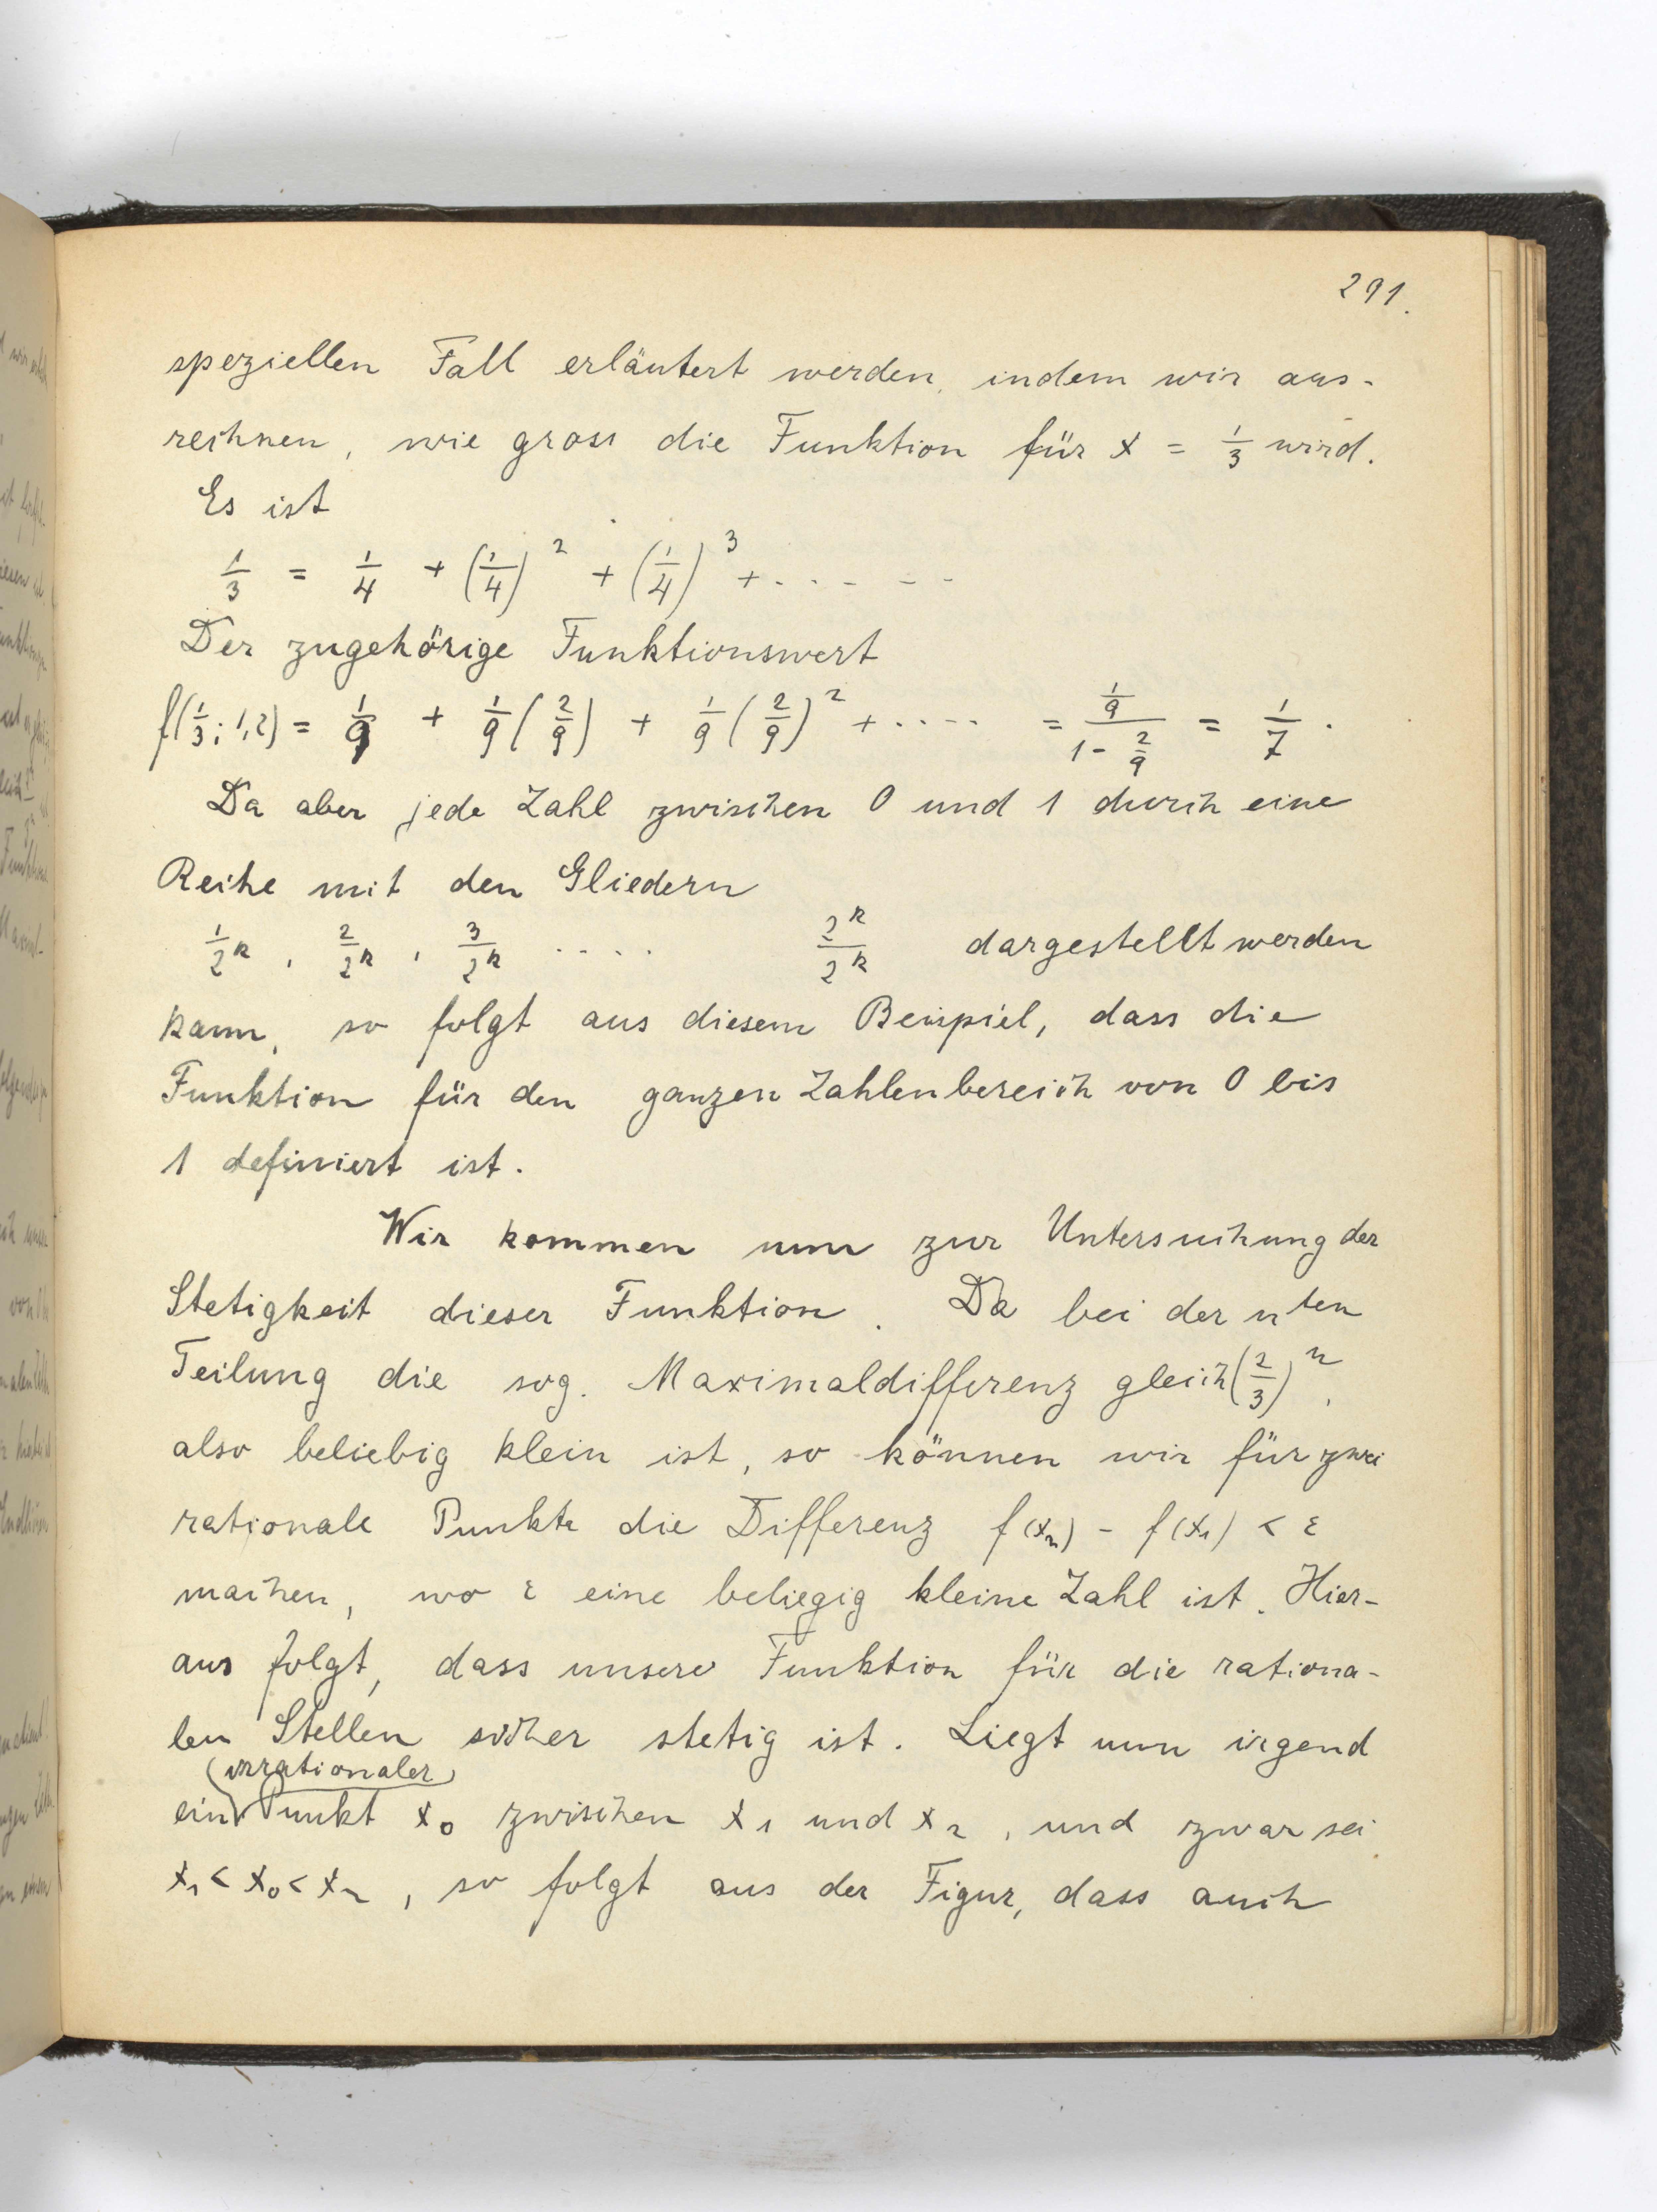 291.
speziellen Fall erläutert werden, indem wir aus-
rechnen, wie gross die Funktion für x = 1/3 wird.
Es ist
1/3 = 1/4 + (1/4)^2 + (1/4)^3 + . . . . . .
Der zugehörige Funktionswert
f(1/3; 1,2) = 1/9 + 1/9 (2/9) + 1/9 (2/9)^2 + . . . . = (1/9)/(1 - 2/9) = 1/7 .
Da aber jede Zahl zwischen 0 und 1 durch eine
Reihe mit den Gliedern
1/2^k , 2/2^k , 3/2^k . . . . 2^k/2^k dargestellt werden
kann, so folgt aus diesem Beispiel, dass die
Funktion für den ganzen Zahlenbereich von 0 bis
1 definiert ist.
Wir kommen nun zur Untersuchung der
Stetigkeit dieser Funktion. Da bei der n^ten
Teilung die sog. Maximaldifferenz gleich (2/3)^n,
also beliebig klein ist, so können wir für zwei
rationale Punkte die Differenz f(x₂) - f(x₁) < ε
machen, wo ε eine beliegig kleine Zahl ist. Hier-
aus folgt, dass unsere Funktion für die rationa-
len Stellen sicher stetig ist. Liegt nun irgend
(irrationaler)
ein Punkt x₀ zwischen x₁ und x₂, und zwar sei
x₁ < x₀ < x₂, so folgt aus der Figur, dass auch